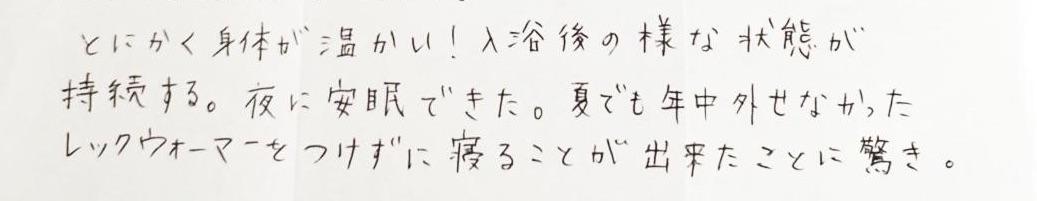 とにかく身体が温かい！入浴後の様な状態が
持続する。夜に安眠できた。夏でも年中外せなかった
レックウォーマーをつけずに寝ることが出来たことに驚き。